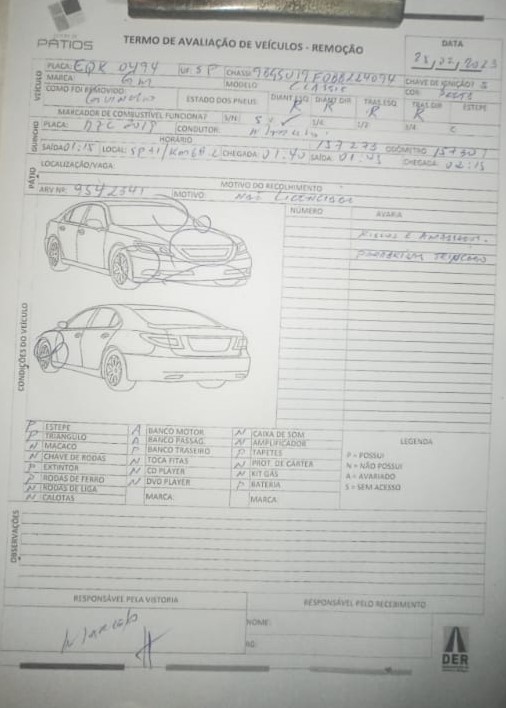 PÁTIOS
TERMO DE AVALIAÇÃO DE VEÍCULOS - REMOÇÃO
DATA
VEÍCULO
PLACA: EQK 0494 UF: SP CHASSI
CHAVE DE IGNIÇÃO? S
MARCA: GM MODELO CLASSIC COR:
COMO FOI REMOVIDO: GUINCHO ESTADO DOS PNEUS: DIANT ESQ R DIANT DIR R TRAS ESQ R TRAS DIR R ESTEPE
MARCADOR DE COMBUSTÍVEL FUNCIONA? S/N:
GUINCHO
PLACA: CONDUTOR:
HORÁRIO
SAÍDA 01:15 LOCAL: CHEGADA: 01:40 SAÍDA: 01:45 ODÔMETRO CHEGADA: 02:15
PÁTIO
LOCALIZAÇÃO/VAGA:
ARV Nº: 9542341
MOTIVO DO RECOLHIMENTO
MOTIVO: NAO LICENCIADO
CONDIÇÕES DO VEÍCULO
NÚMERO AVARIA
RISCOS E AMASSADOS.
TRINCADO
P ESTEPE A BANCO MOTOR N CAIXA DE SOM
P TRIANGULO A BANCO PASSAG. N AMPLIFICADOR
N MACACO P BANCO TRASEIRO P TAPETES
N CHAVE DE RODAS N TOCA FITAS N PROT. DE CÁRTER
P EXTINTOR N CD PLAYER N KIT GÁS
P RODAS DE FERRO N DVD PLAYER P BATERIA
N RODAS DE LIGA
N CALOTAS MARCA: MARCA:
LEGENDA
P = POSSUI
N = NÃO POSSUI
A = AVARIADO
S = SEM ACESSO
OBSERVAÇÕES
RESPONSÁVEL PELA VISTORIA
RESPONSÁVEL PELO RECEBIMENTO
NOME:
RG:
DER